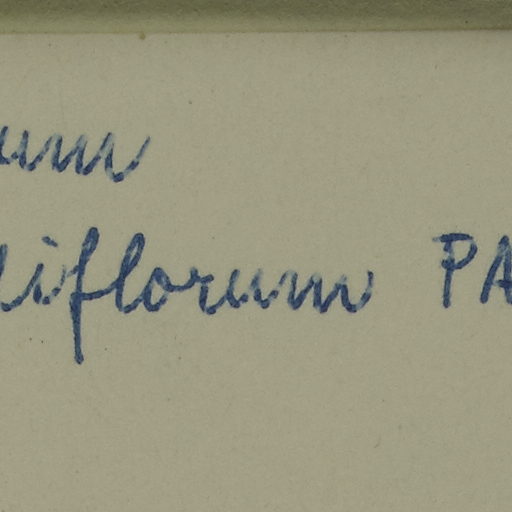 um
iflorum PA